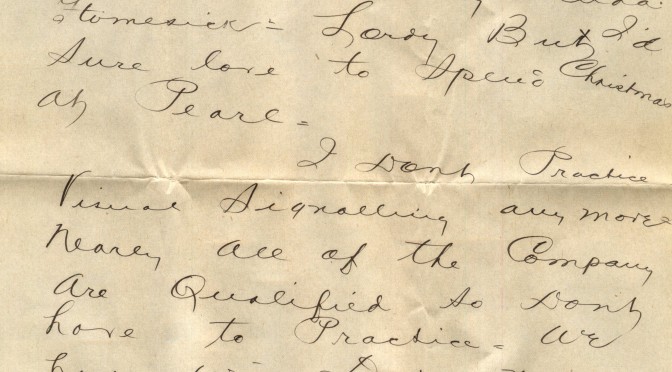 Homesick = Lordy But I'd
Sure love to Spend Christmas
at Pearl =
I Dont Practice
Visual Signalling any more =
Nearly all of the Company
are Qualified so Dont
have to Practice = We